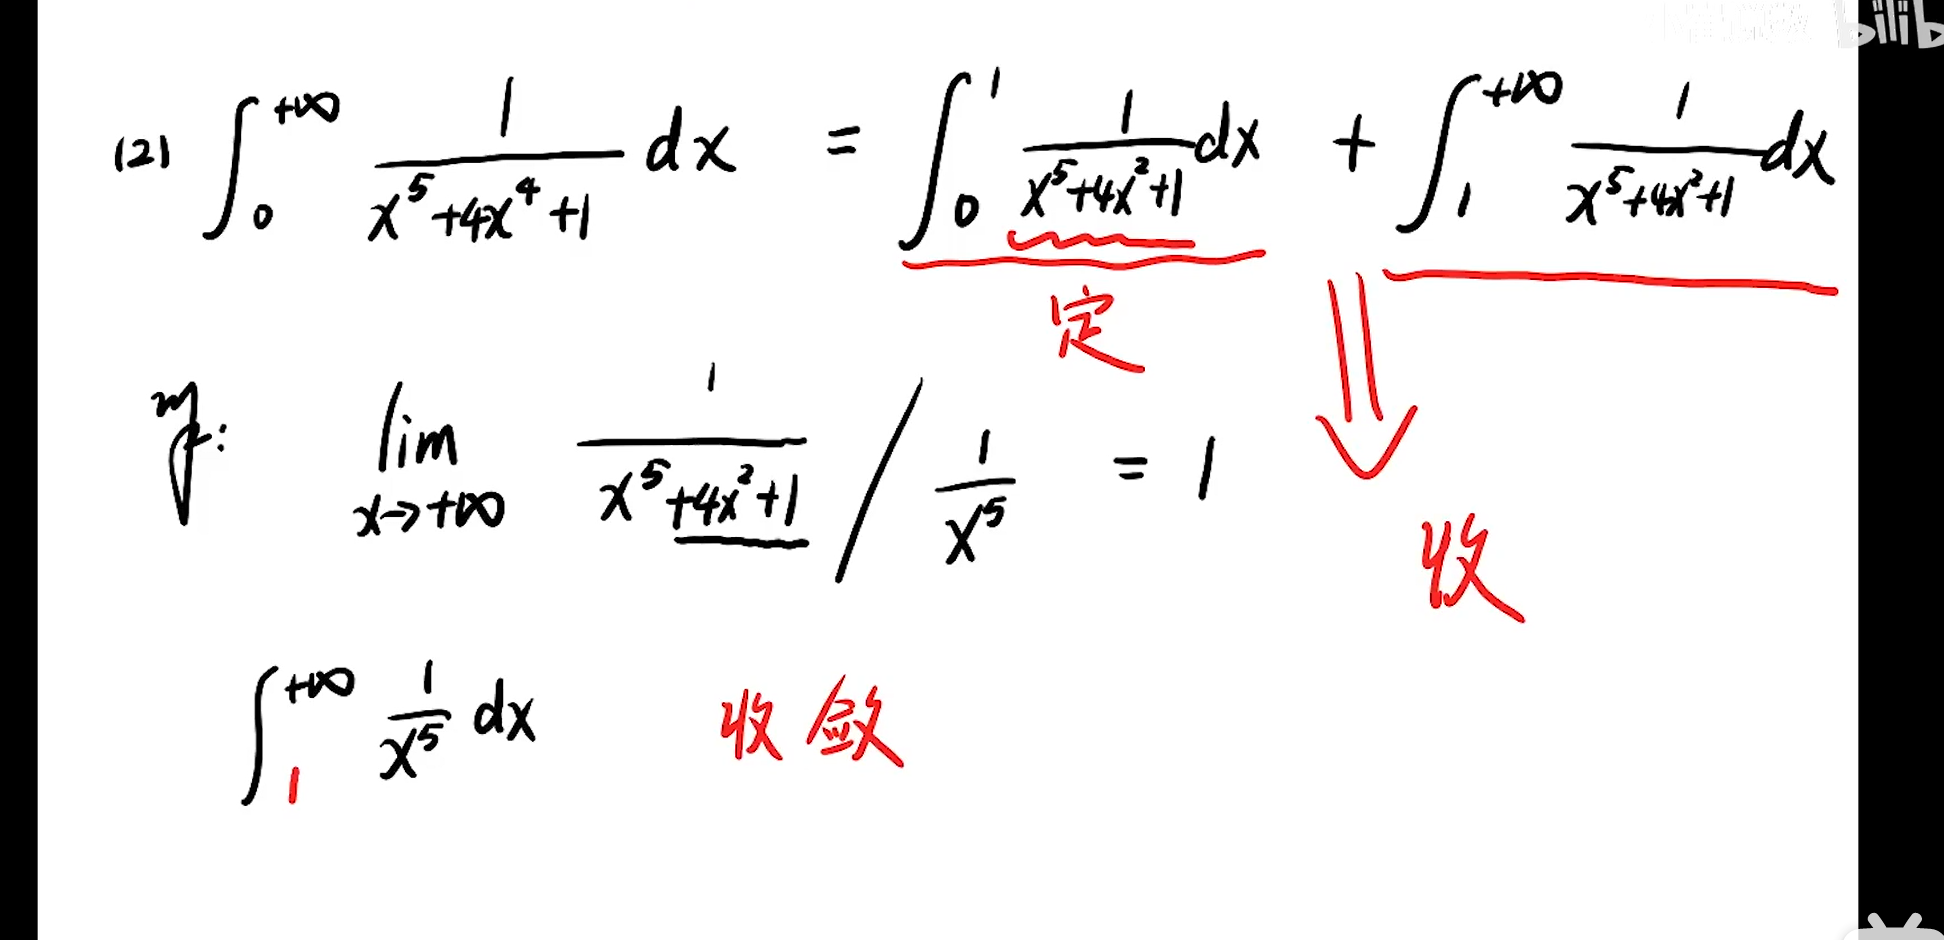 bilib
(2) ∫₀^{+∞} 1/(x⁵+4x⁴+1) dx = ∫₀^1 1/(x⁵+4x²+1) dx + ∫₁^{+∞} 1/(x⁵+4x²+1) dx
定
lim_{x→+∞} 1/(x⁵+4x²+1) / 1/x⁵ = 1
收
∫₁^{+∞} 1/x⁵ dx 收敛